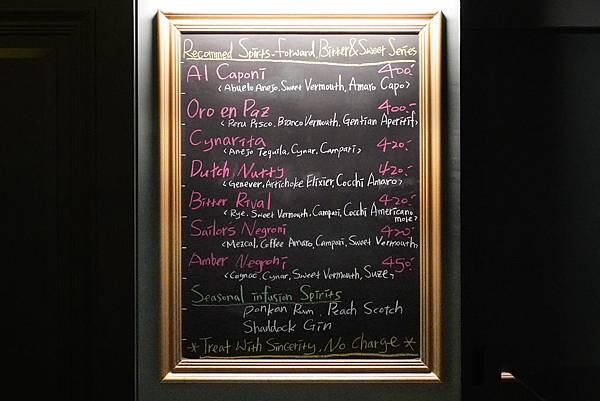 Recommed Spirts-forward, Bitter & Sweet Series
Al Caponi 400.-
<Abuelo Anejo, Sweet Vermouth, Amaro Capo>
Oro en Paz 400.-
<Peru Pisco, Bianco Vermouth, Gentian Aperitif>
Cynarita 420.-
<Anejo Tequila, Cynar, Campari>
Dutch Nutty 420.-
<Genever, Artichoke Elixier, Cocchi Amaro>
Bitter Rival 420.-
<Rye, Sweet Vermouth, Campari, Cocchi Americano
more>
Sailors Negroni 420.-
<Mezcal, Coffee Amaro, Campari, Sweet Vermouth>
Amber Negroni 450.-
<Cognac, Cynar, Sweet Vermouth, Suze>
Seasonal infusion Spirits
Ponkan Rum, Peach Scotch
Shaddock Gin
* Treat With Sincerity, No Charge *